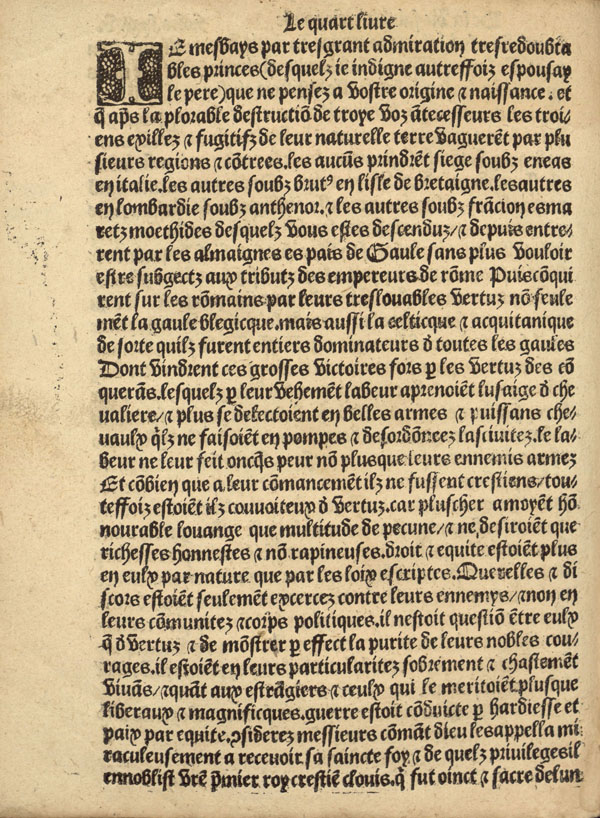 Le quart liure
IE mesbays par tresgrant admiration tresredoubta
bles princes(desquelz ie indigne autreffoiz espousay
le pere)que ne pensez a vostre origine ⁊ naissance. et
q̄ apꝭs la plorable destructiō de troye voz ātecesseurs les troi-
ens exillez ⁊ fugitifz de leur naturelle terre vaguerēt par plu
sieurs regions ⁊ cōtrees.les aucūs prindrēt siege soubz eneas
en italie.les autres soubz brutꝰ en lisle de bretaigne.lesautres
en lombardie soubz anthenor.⁊ les autres soubz frācion es ma
retz moethides desquelz vous estes descenduz/⁊ depuis entre-
rent par les almaignes es pais de Gaule sans plus vouloir
estre subgectz aux tributz des empereurs de rōme Puiscōqui
rent sur les rōmains par leurs treslouables vertuz nō seule
mēt la gaule blegicque.mais aussi la celticque ⁊ acquitanique
de sorte quilz furent entiers dominateurs d̄ toutes les gaules
Dont vindrent ces grosses victoires fors ꝑ les vertuz des cō
querās.lesquelz ꝑ leur vehemēt labeur aprenoiēt lusaige d̄ che
valiere/⁊ plus se delectoient en belles armes ⁊ puissans che-
vaulx q̄lz ne faisoiēt en pompes ⁊ desordōneez lasciuitez.le la-
beur ne leur feit oncq̄s peur nō plusque leurs ennemis armez
Et cōbien que a leur cōmancement ilz ne fussent crestiens/tou-
teffoiz estoiēt ilz couuoiteux d̄ vertuz.car pluscher amoyēt hō
nourable louange que multitude de pecune/⁊ ne desiroiēt que
richesses honnestes ⁊ nō rapineuses.droit ⁊ equite estoiēt plus
en eulx par nature que par les loix escriptes.Querelles ⁊ di
scors estoiēt seulemēt exercez contre leurs ennemys/⁊non en
leurs cōmunitez ⁊corps politiques.il nestoit questiō ētre eulx
q̄ d̄ vertuz ⁊ de mōstrer ꝑ effect la purite de leurs nobles cou-
rages.il estoiēt en leurs particularitez sobrement ⁊ chastemēt
viuās/⁊quāt aux estrāgiers ⁊ ceulx qui le meritoiēt plusque
liberaux ⁊ magnificques.guerre estoit cōduicte ꝑ hardiesse et
paix par equite.ꝯsiderez messieurs cōmāt dieu les appella mi
raculeusement a recevoir sa saincte foy ⁊ de quelz priuileges il
ennoblist vr̄e p̄mier roy crestiē clouis.q̄ fut oinct ⁊ sacre delun